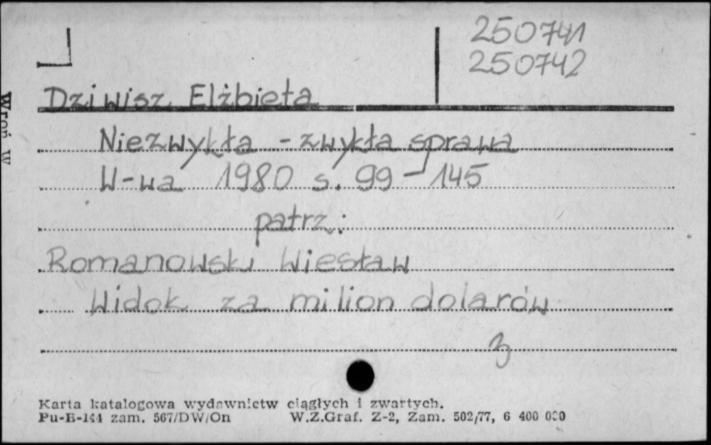 250741
250742
Dziwisz Elżbieta
Niezwykła - zwykła sprawa
W-wa 1980 s. 99-145
patrz:
Romanowski Wiesław
Widok za milion dolarów
3
Karta katalogowa wydawnictw ciągłych i zwartych.
Pu-B-144 zam. 567/DW/On W.Z.Graf. Z-2, Zam. 502/77, 6 400 000